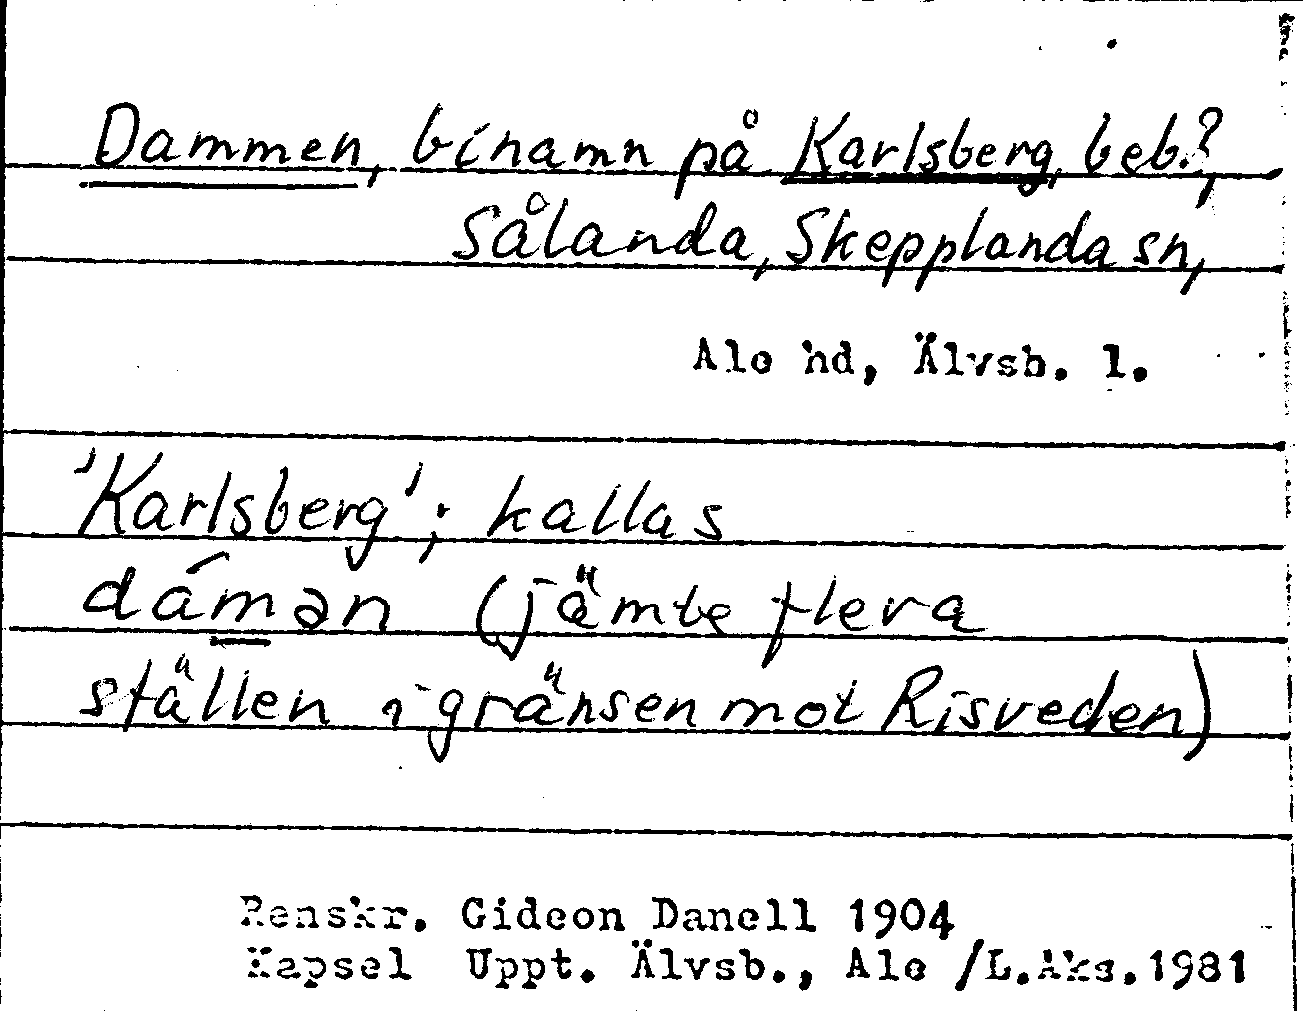 Dammen, binamn på Karlsberg, beb.?,
Sålanda, Skepplanda sn,
Ale hd, Älvsb. l.
'Karlsberg'; kallas
dámən (jämte flera
ställen i gränsen mot Risveden)
Renskr. Gideon Danell 1904
Kapsel Uppt. Älvsb., Ale /L.Aks.1981